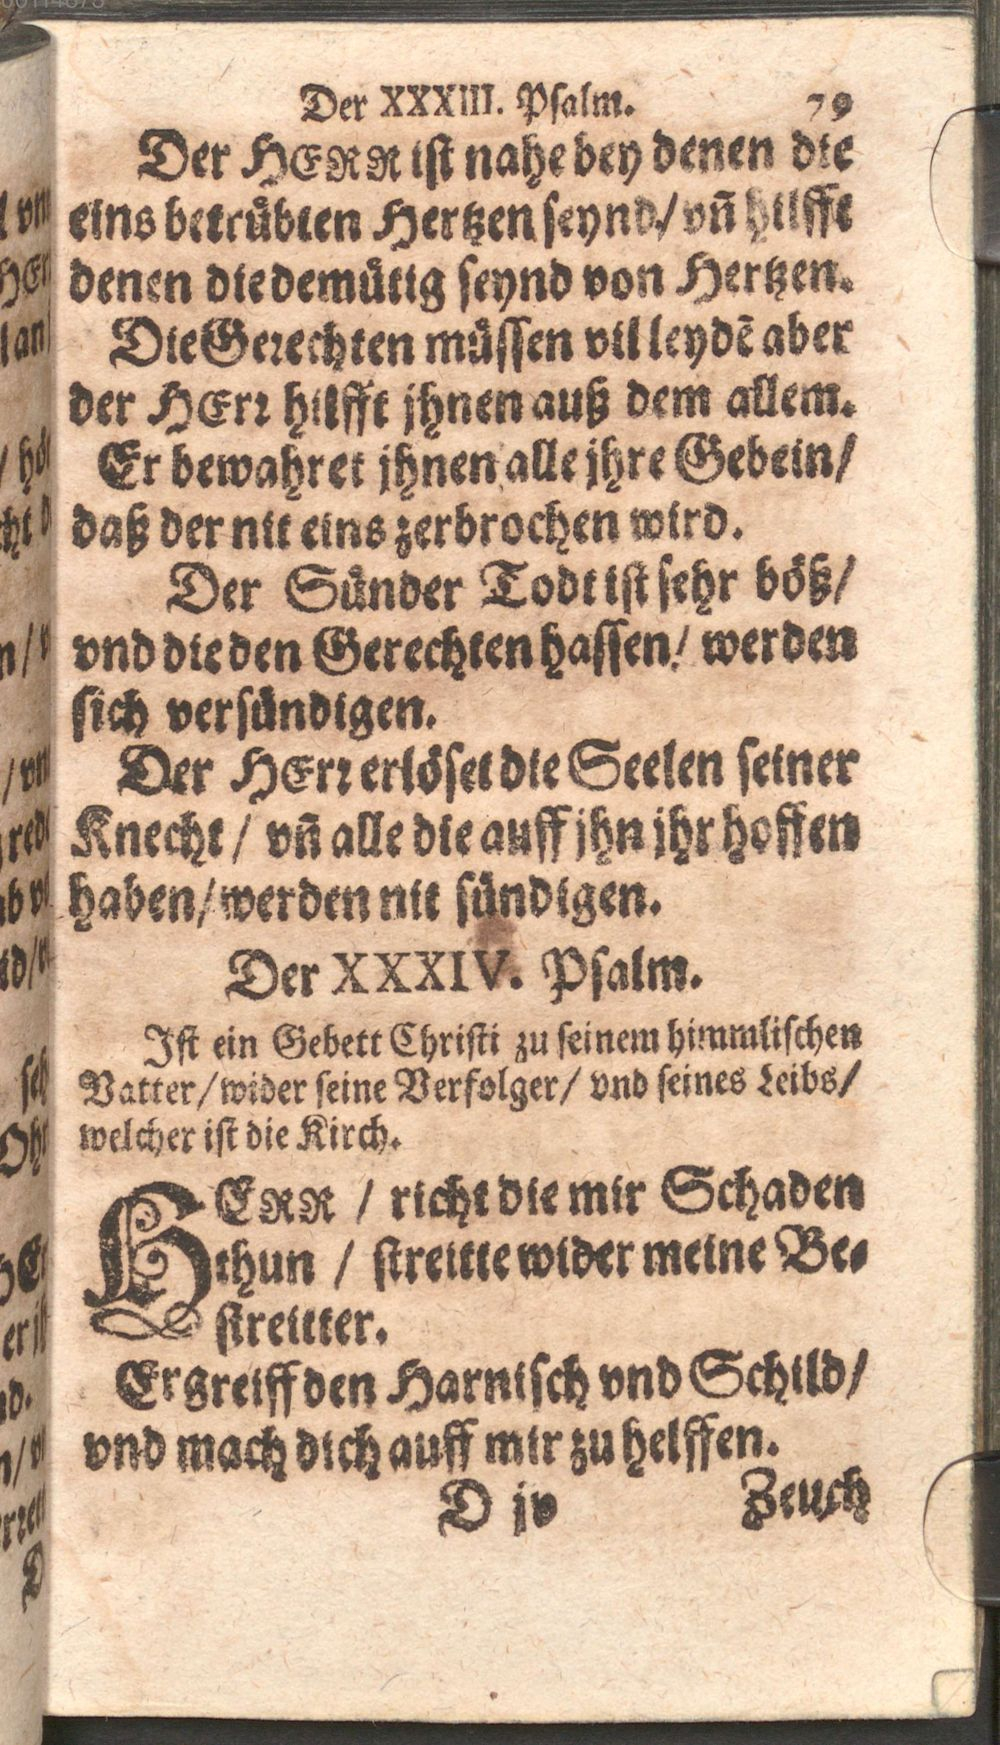 Der XXXIII. Psalm. 79
Der HERR ist nahe bey denen die
eins betrübten Hertzen seynd/ vñ hilfft
denen die demütig seynd von Hertzen.
Die Gerechten müssen vil leydē aber
der HErr hilfft jhnen auß dem allem.
Er bewahret jhnen alle jhre Gebein/
daß der nit eins zerbrochen wird.
Der Sünder Todt ist sehr böß/
vnd die den Gerechten hassen/ werden
sich versündigen.
Der HErr erlöset die Seelen seiner
Knecht/ vñ alle die auff jhn jhr hoffen
haben/ werden nit sündigen.
Der XXXIV. Psalm.
Ist ein Gebett Christi zu seinem himmlischen
Vatter/ wider seine Verfolger/ vnd seines Leibs/
welcher ist die Kirch.
HERR / richt die mir Schaden
thun / streitte wider meine Be-
streitter.
Ergreiff den Harnisch vnd Schild/
vnd mach dich auff mir zu helffen.
D jv Zeuch